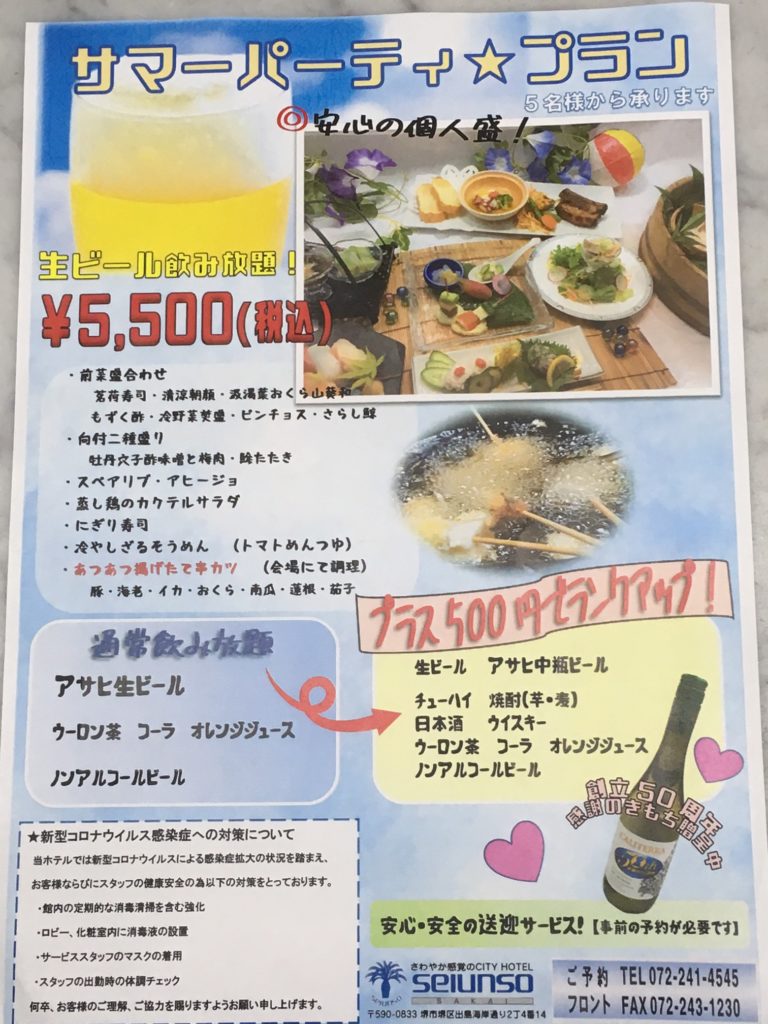 サマーパーティ★プラン
5名様から承ります
◎安心の個人盛!
生ビール飲み放題!
¥5,500(税込)
・前菜盛合わせ
茗荷寿司・清涼朝顔・汲湯葉おくら山葵和
もずく酢・冷野菜焚盛・ピンチョス・さらし鯨
・向付二種盛り
牡丹穴子酢味噌と梅肉・鮭たたき
・スペアリブ・アヒージョ
・蒸し鶏のカクテルサラダ
・にぎり寿司
・冷やしざるそうめん (トマトめんつゆ)
・あつあつ揚げたて串カツ (会場にて調理)
豚・海老・イカ・おくら・南瓜・蓮根・茄子
プラス500円でランクアップ!
通常飲み放題
アサヒ生ビール
ウーロン茶 コーラ オレンジジュース
ノンアルコールビール
生ビール アサヒ中瓶ビール
チューハイ 焼酎(芋・麦)
日本酒 ウイスキー
ウーロン茶 コーラ オレンジジュース
ノンアルコールビール
創立50周年
感謝のきもち贈呈中
CALITERRA
★新型コロナウイルス感染症への対策について
当ホテルでは新型コロナウイルスによる感染症拡大の状況を踏まえ、
お客様ならびにスタッフの健康安全の為以下の対策をとっております。
・館内の定期的な消毒清掃を含む強化
・ロビー、化粧室内に消毒液の設置
・サービススタッフのマスクの着用
・スタッフの出勤時の体調チェック
何卒、お客様のご理解、ご協力を賜りますようお願い申し上げます。
安心・安全の送迎サービス!【事前の予約が必要です】
さわやか感覚のCITY HOTEL
SEIUNSO
SAKAI
〒590-0833 堺市堺区出島海岸通り2丁4番14
ご予約 TEL072-241-4545
フロント FAX072-243-1230